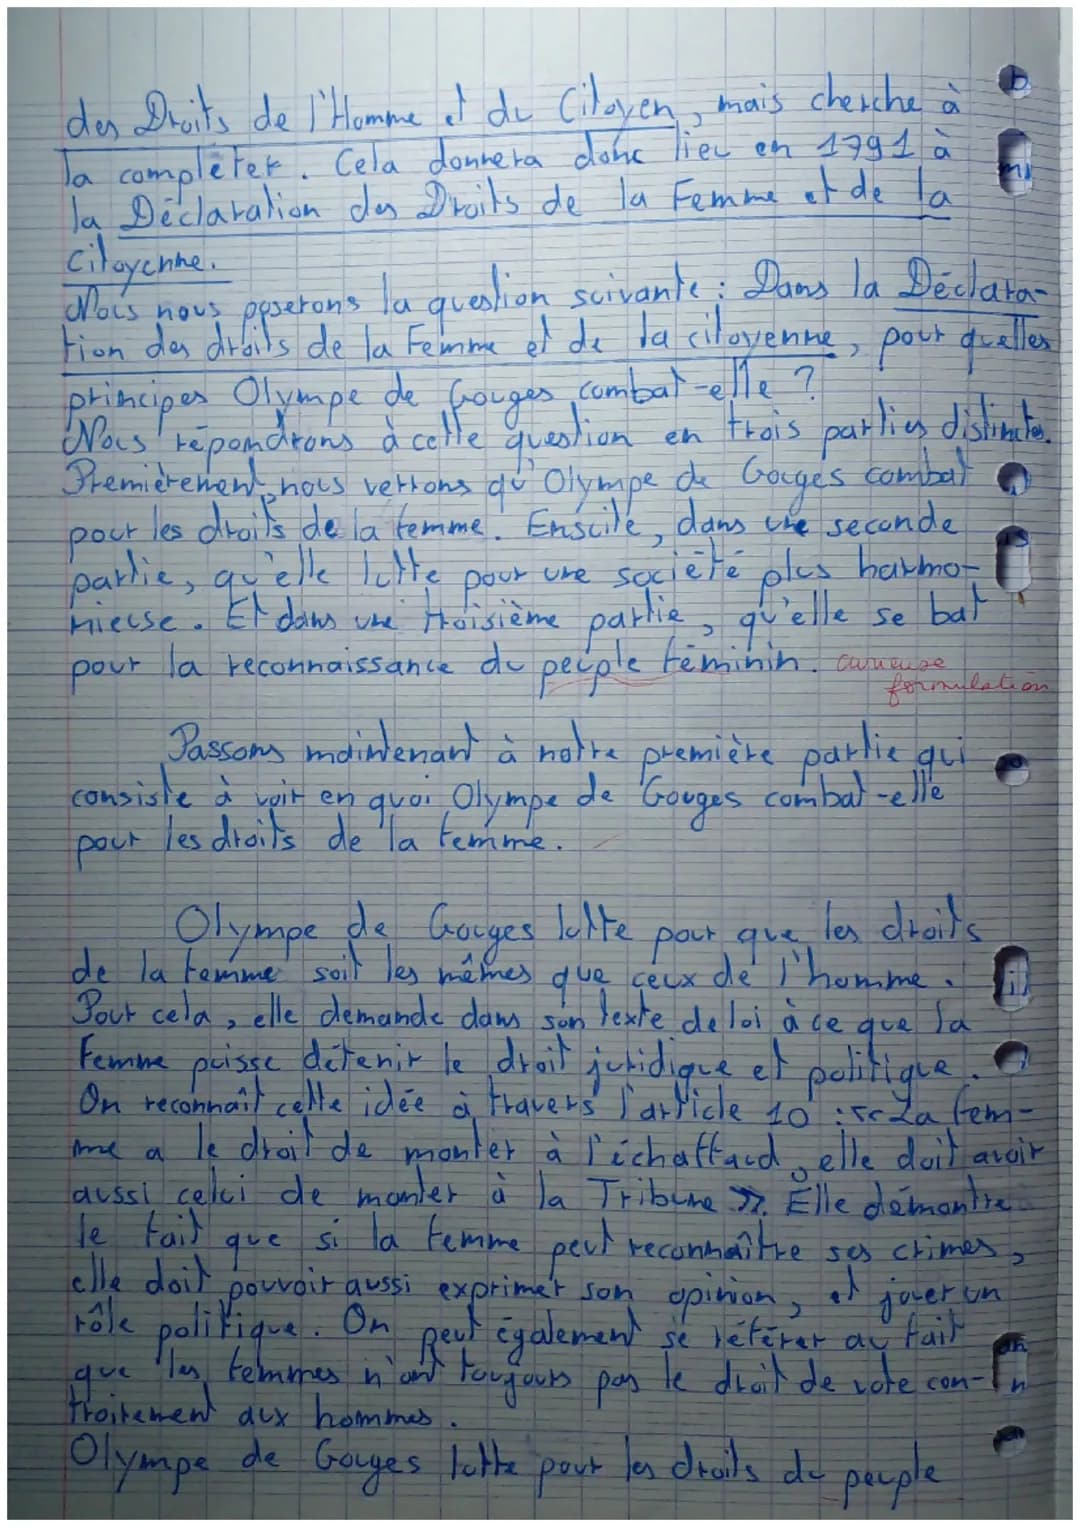 des Droits de l'Homme et du Citoyen, mais cherche à
la compléter. Cela donnera donc lieu en 1791 à
la Déclaration des Droits de la Femme et de la
Citoyenne.
Nous nous poserons la question suivante : Dans la Déclara-
tion des droits de la Femme et de la citoyenne, pour quelles
principes Olympe de Gouges combat-elle ?
Nous répondrons à cette question en trois parties distinctes.
Premièrement, nous verrons qu'Olympe de Gouges combat
pour les droits de la femme. Ensuite, dans une seconde
partie, qu'elle lutte pour une société plus harmo-
nieuse. Et dans une troisième partie, qu'elle se bat
pour la reconnaissance du peuple féminin. curieuse
formulation
Passons maintenant à notre première partie qui
consiste à voir en quoi Olympe de Gouges combat-elle
pour les droits de la femme.
Olympe de Gouges lutte pour que les droits
de la femme soit les mêmes que ceux de l'homme.
Pour cela, elle demande dans son texte de loi à ce que la
Femme puisse détenir le droit juridique et politique.
On reconnaît cette idée à travers l'article 10 : « La fem-
me a le droit de monter à l'échaffaud, elle doit avoir
aussi celui de monter à la Tribune ». Elle démontre
le fait que si la femme peut reconnaître ses crimes,
elle doit pouvoir aussi exprimer son opinion, et jouer un
rôle politique. On peut également se référer au fait
que les femmes n'ont toujours pas le droit de vote con-
trairement aux hommes.
Olympe de Gouges lutte pour les droits du peuple